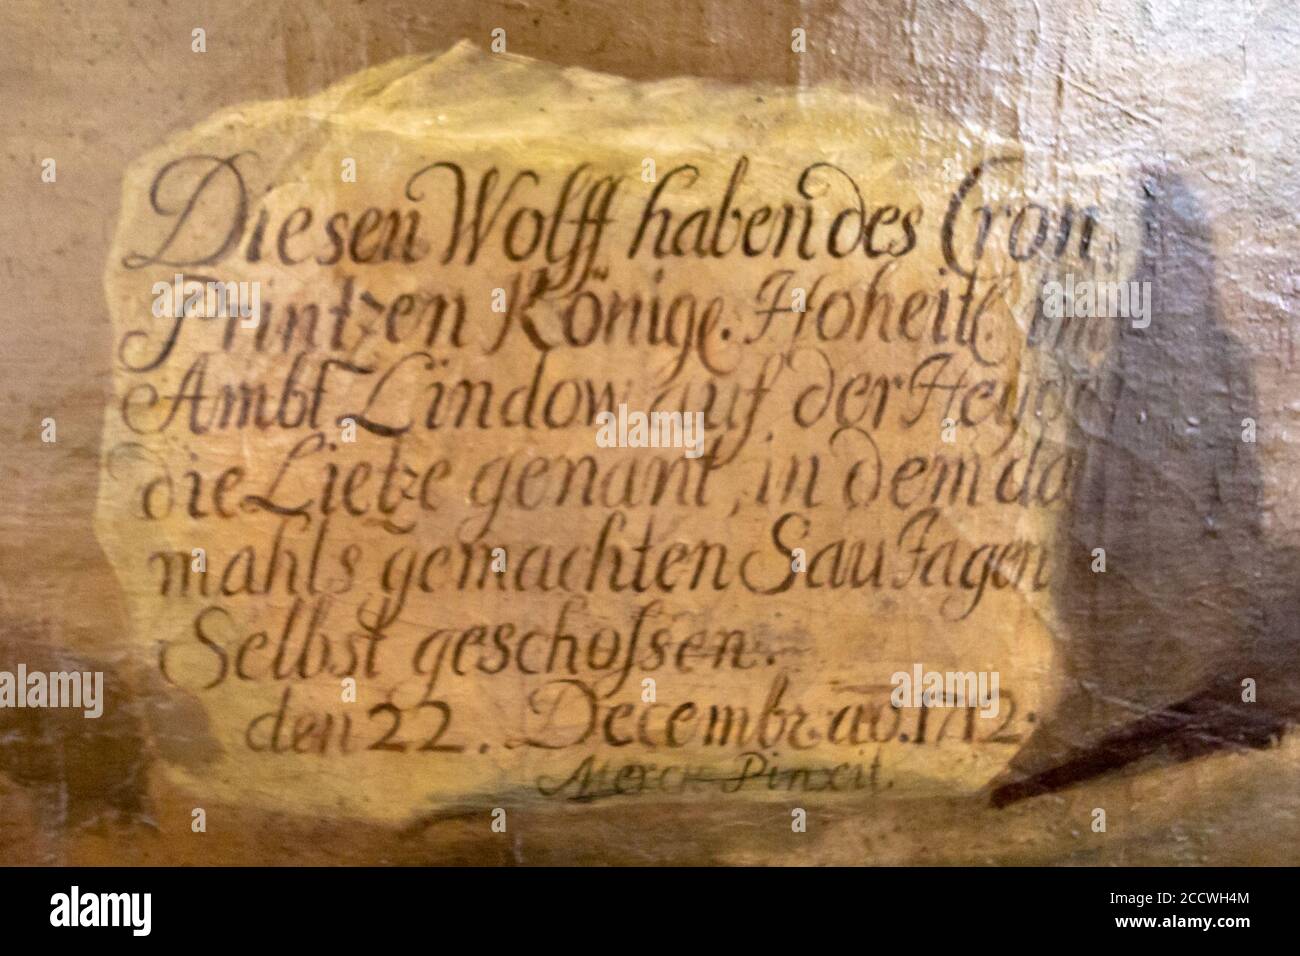 Diesen Wolff haben des Cron
Printzen Könige. Hoheit im
Ambt Lindow auf der Heyde
die Lietze genant, in dem da
mahls gemachten Sau Jagen
Selbst geschossen.
den 22. Decembr. ao. 1712.
Merck Pinxit.
alamy
Image ID: 2CCWH4M
www.alamy.com